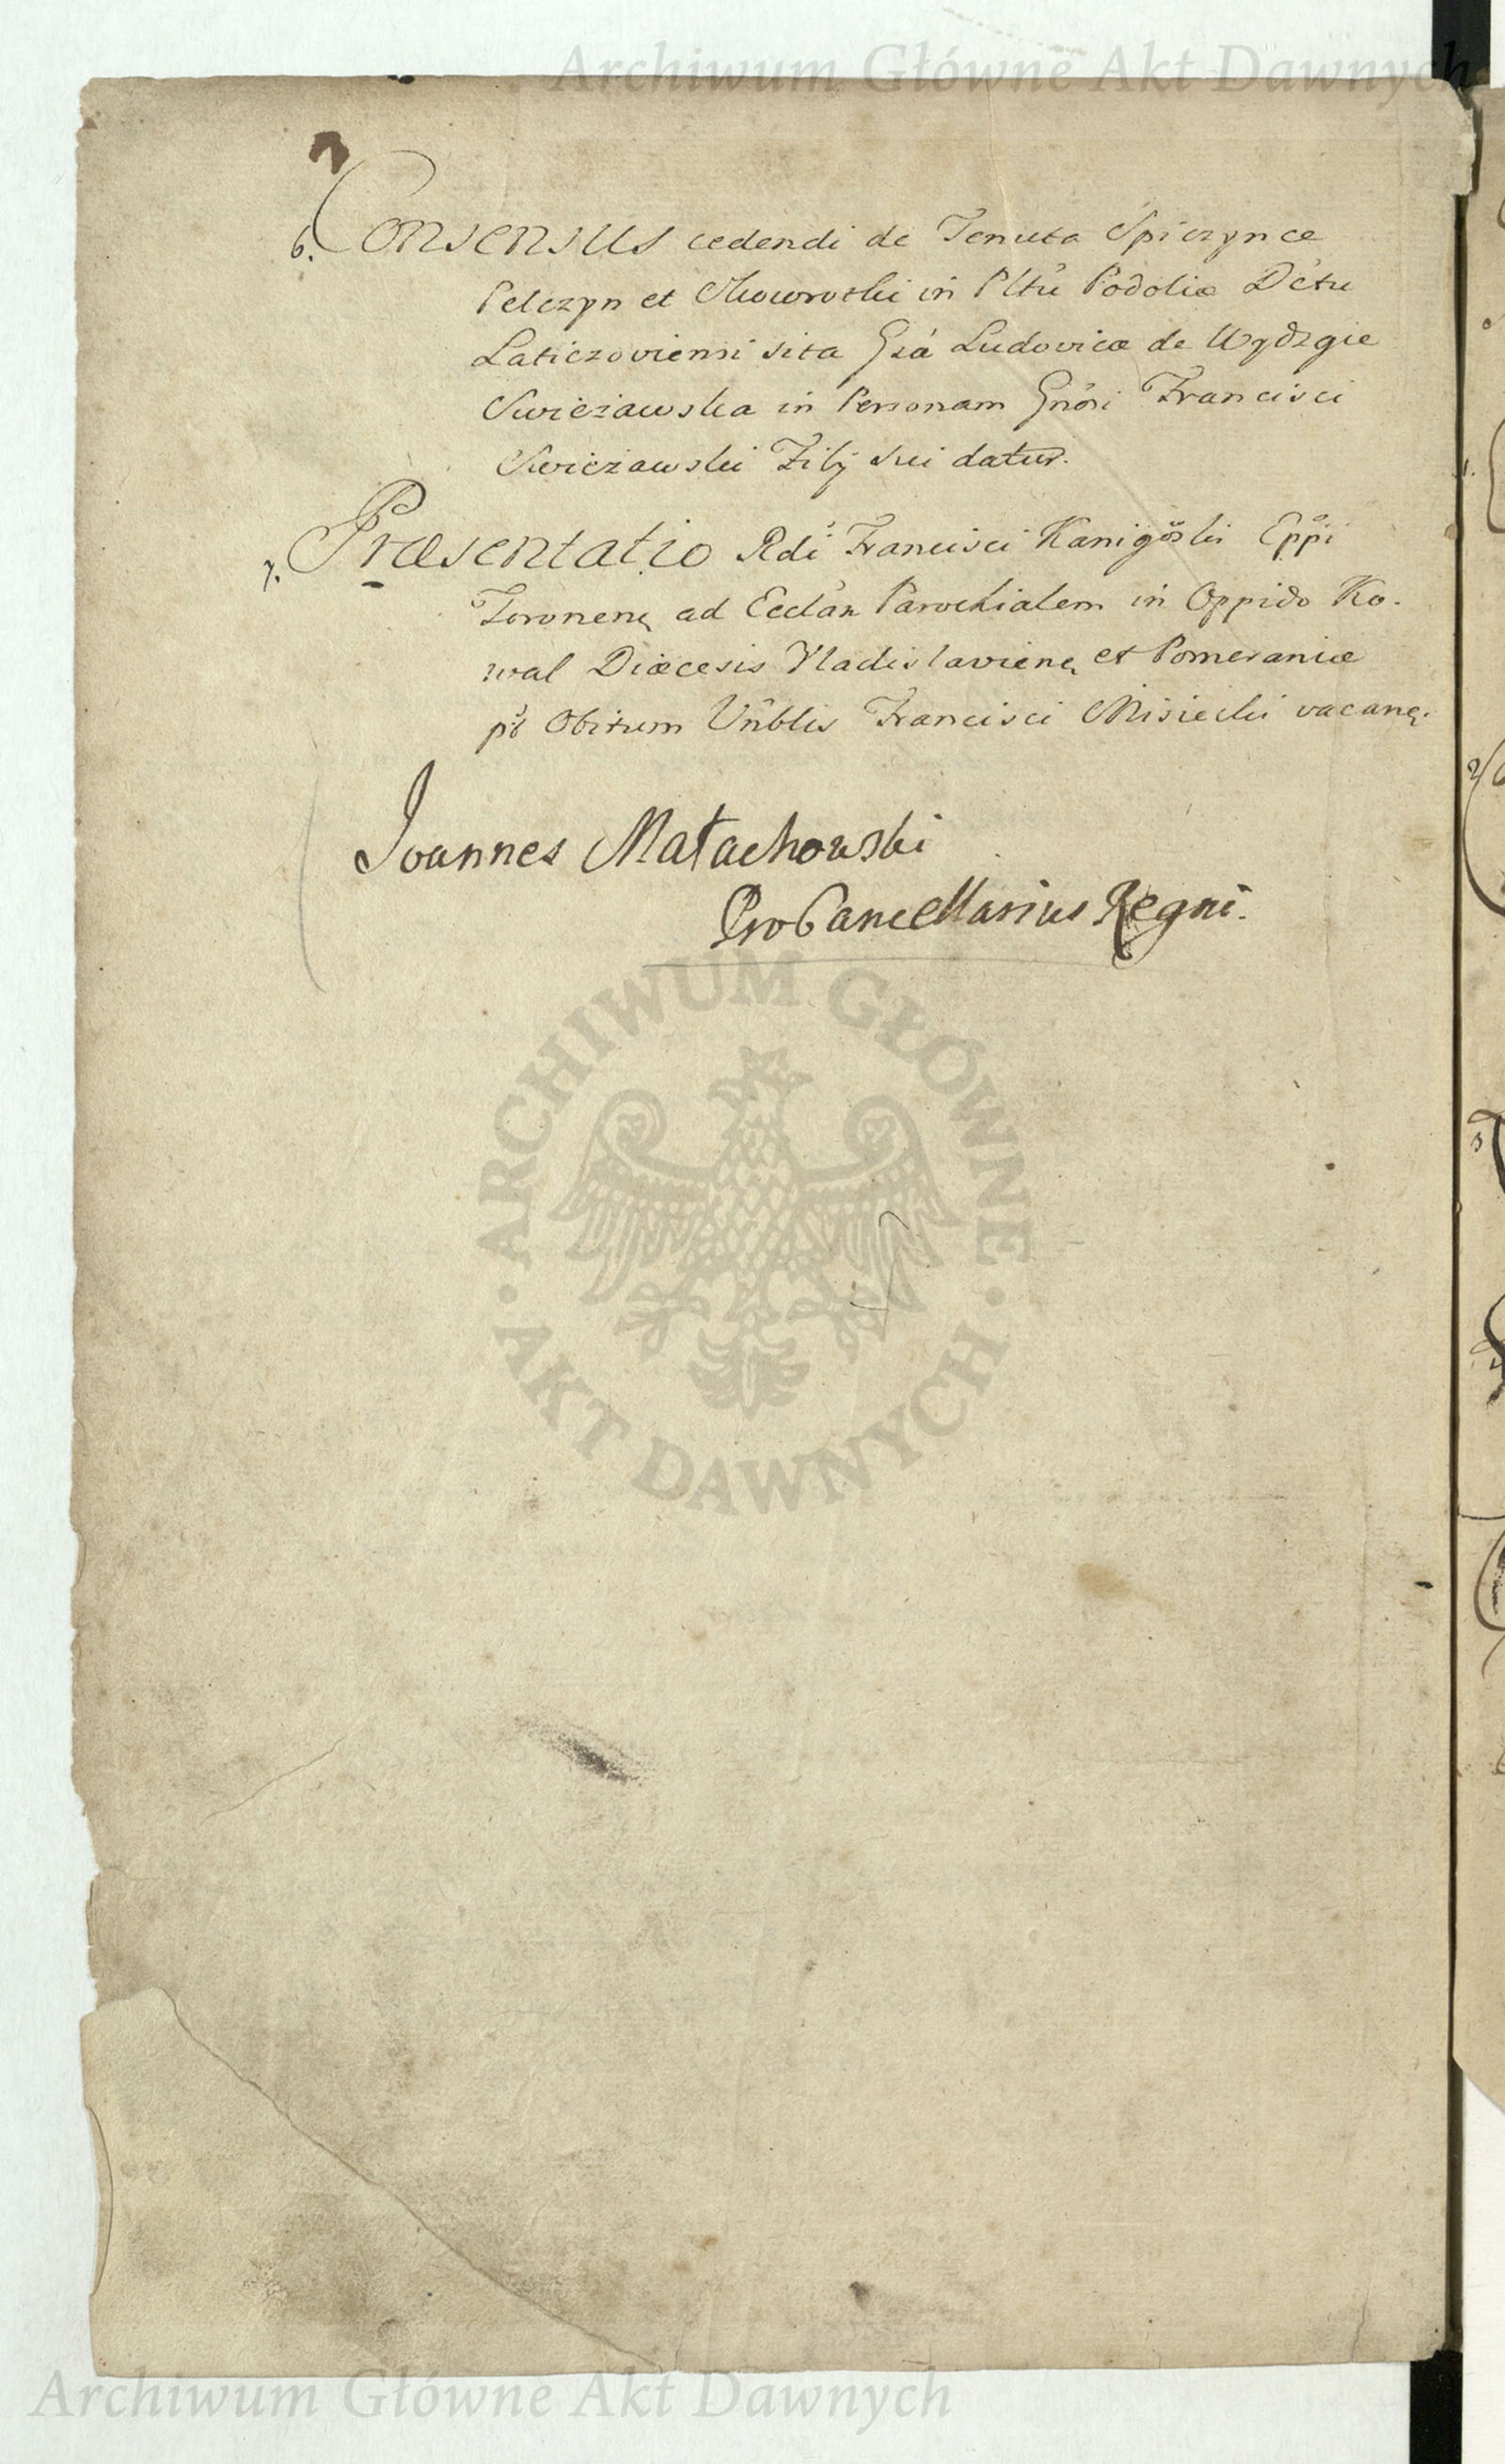 Archiwum Główne Akt Dawnych
6. Consensus cedendi de Tenuta Spiczynce
Pelczyn et Skowrotki in Pltu Podoliæ Dctu
Laticzoviensi sita Gsa Ludovica de Wydzgie
Swieżawska in Personam Gnosi Francisci
Swieżawski Filij sui datur.
7. Præsentatio Rdi Francisci Kanigöski Eppi
Toronen ad Eccla Parochialem in Oppido Ko-
wal Diæcesis Vladislavien et Pomeraniæ
pt Obitum Vnblis Francisci Misiecki vacan.
Joannes Małachowski
ProCancellarius Regni.
ARCHIWUM GŁÓWNE
AKT DAWNYCH
Archiwum Główne Akt Dawnych